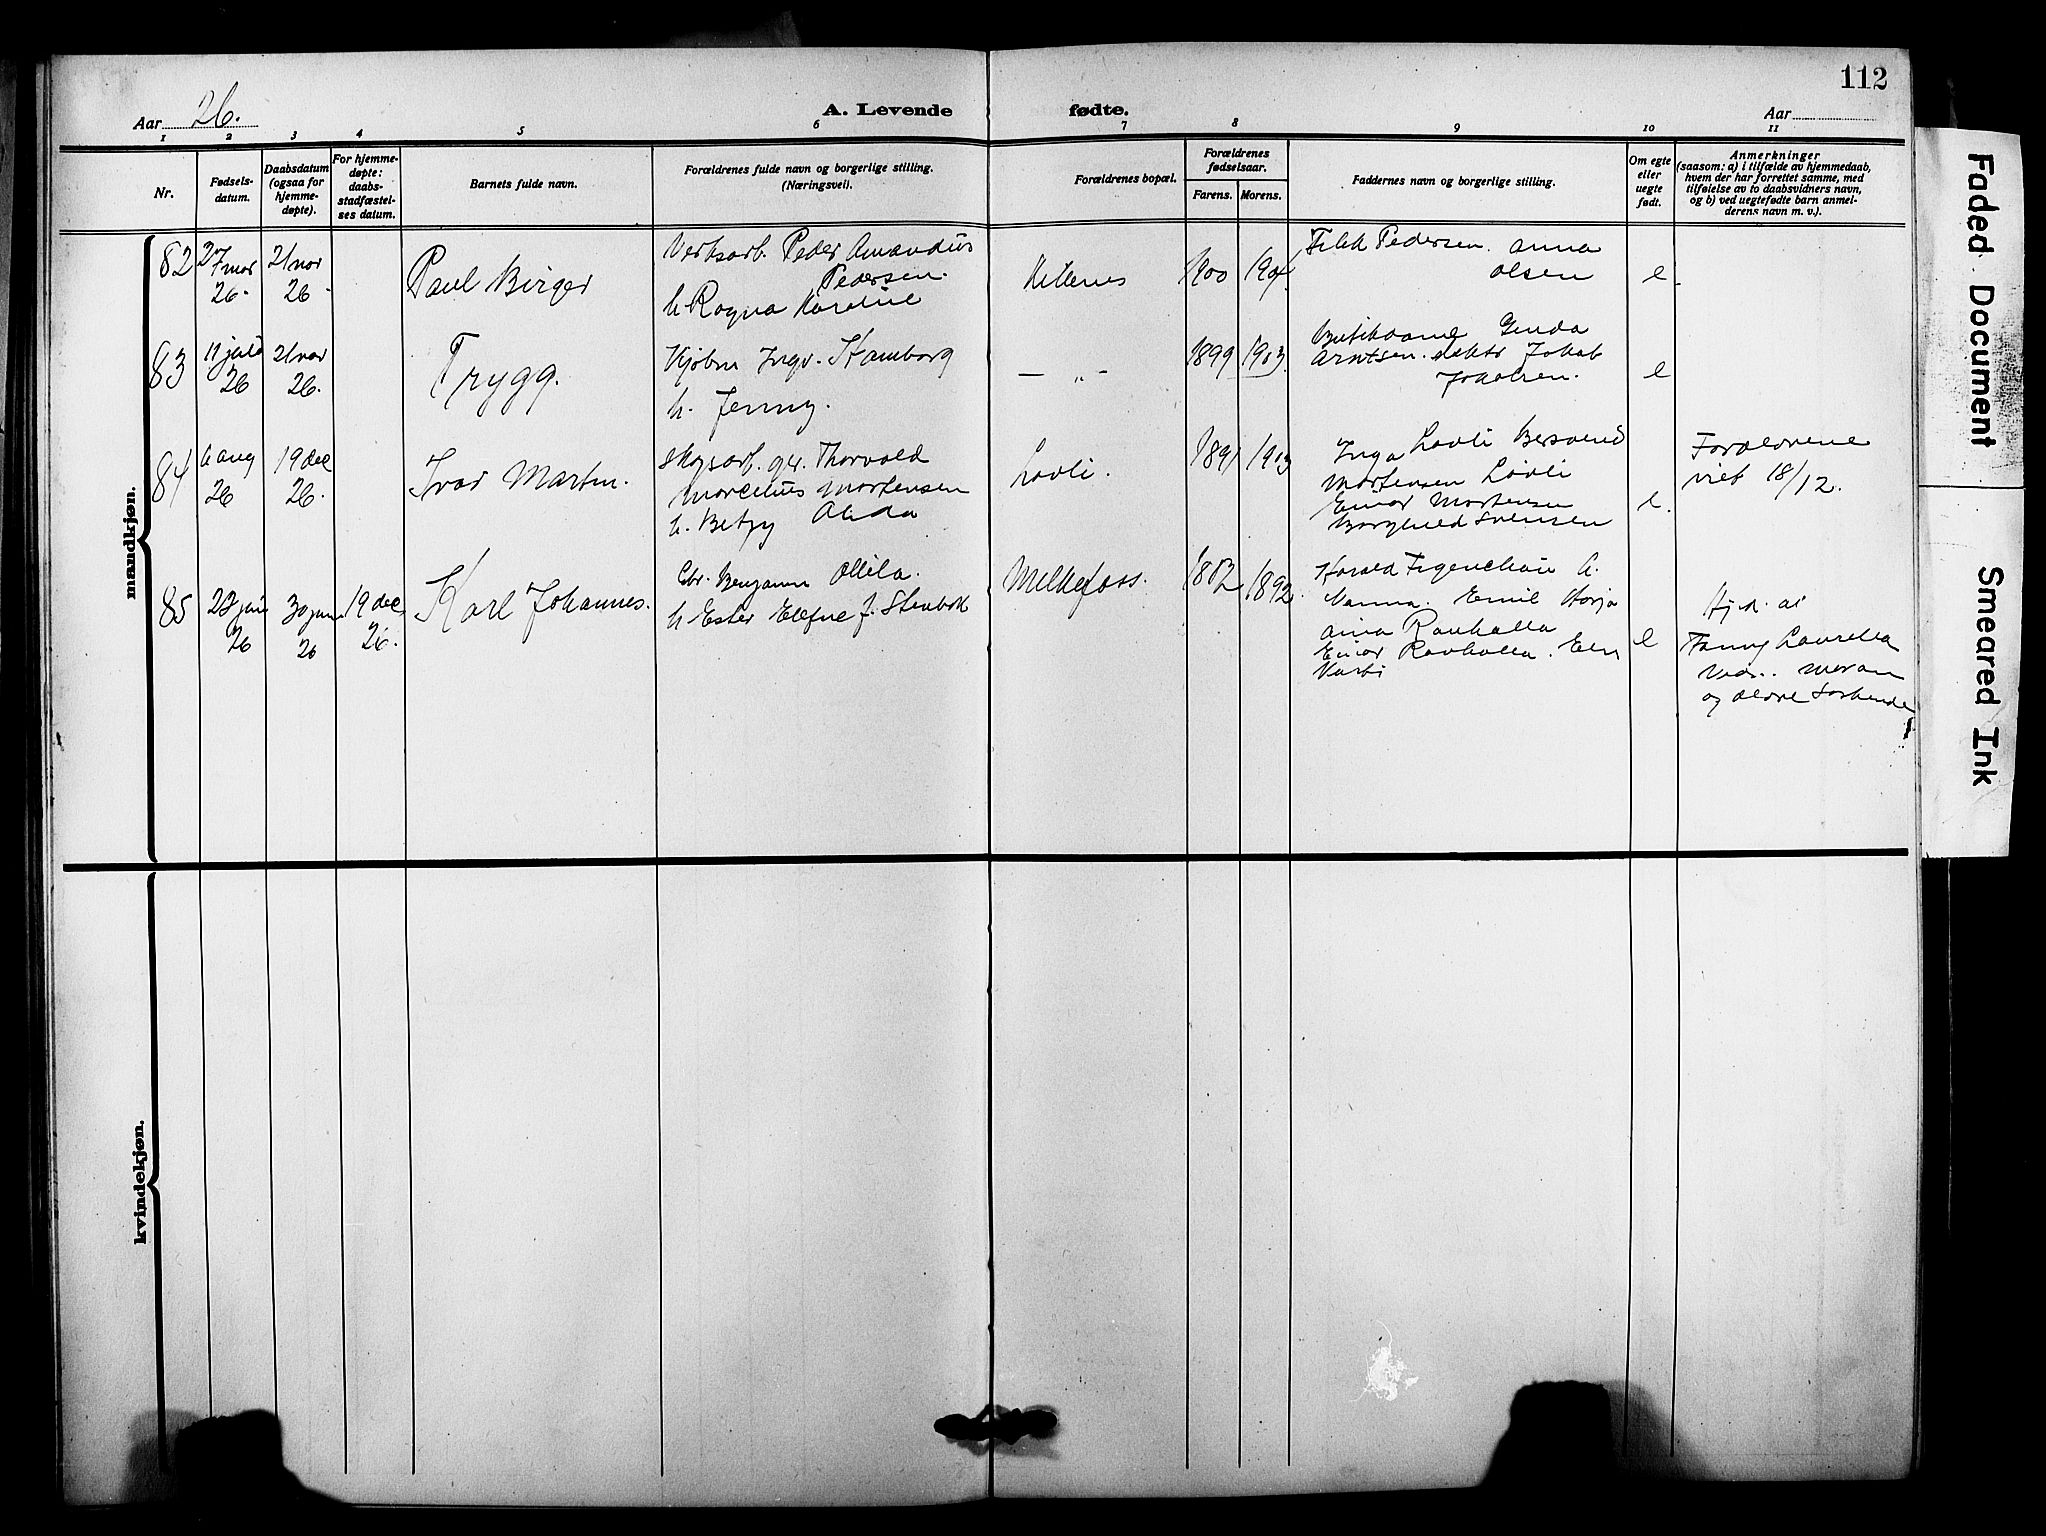 112
Aar 26.
A. Levende fødte.
Aar
1 2 3 4 5 6 7 8 9 10 11
Nr.
Fødsels-
datum.
Daabsdatum
(ogsaa for
hjemme-
døpte).
For hjemme-
døpte:
daabs-
stadfæstel-
ses datum.
Barnets fulde navn.
Forældrenes fulde navn og borgerlige stilling.
(Næringsvei).
Forældrenes bopæl.
Forældrenes
fødselsaar.
Farens. Morens.
Faddernes navn og borgerlige stilling.
Om egte
eller
uegte
født.
Anmerkninger
(saasom: a) i tilfælde av hjemmedaab,
hvem der har forrettet samme, med
tilføielse av to daabsvidners navn,
og b) ved uegtefødte barn anmel-
derens navn m. v.).
mandkjøn.
82
27 mar
26.
21 nov
26.
Paul Birger
Verksarb. Peder Amandus
Pedersen.
h. Ragna Karoline
1900
Pedersen. Anna
Olsen
e
83
11 juli
26
21 nov
26.
Trygg.
Kjøbm Ingv. Stamborg
h. Jenny.
— „ —
1899 1903.
Arntsen. Jakob
e
84
6 aug
26
19 dec
26.
Ivar Martin.
Skogsarb. Thorvald
Marcelius Mortensen
h. Betzy Alida
Lovli.
1891 1903
Inga Lovli
Mortensen Lovli
Einar Mortensen
Borghild Svensen
e.
Forældrene
viet 18/12.
85
23 juni
26
30 juni
26
19 dec
26.
Karl Johannes.
Chr. Benjamin Ollila.
h Ester f. Stenbak
Melkefoss.
1892.
Harald
Nanna. Emil
Aina
Einar
e
Hjd. av
Fanny
og
kvindekjøn.
Faded Document
Smeared Ink